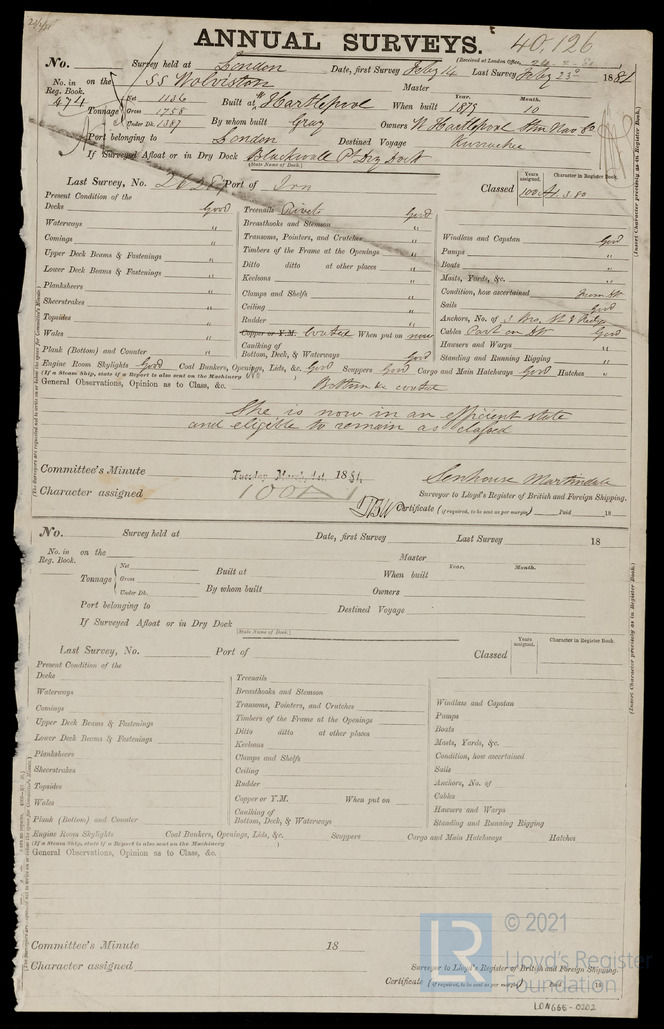 ANNUAL SURVEYS. 40,126
No. Survey held at London Date, first Survey Feby 14 Last Survey Feby 23d 1881
(Received at London Office,
No. in Reg. Book. on the SS Wolviston Master
474 Tonnage Net 1136 Gross 1758 Under Dk. 1387 Built at W Hartlepool When built Year. 1879 Month. 10
By whom built Gray Owners W Hartlepool Stm Nav Co.
Port belonging to London Destined Voyage Kurrachee
If Surveyed Afloat or in Dry Dock Blackwall Pt Dry Dock
(State Name of Dock.)
Last Survey, No. Port of Classed Years assigned. Character in Register Book.
100A1 3.80
Present Condition of the
Decks Good Treenails Rivets Good
Waterways " Breasthooks and Stemson " Windlass and Capstan Good
Comings " Transoms, Pointers, and Crutches " Pumps "
Upper Deck Beams & Fastenings " Timbers of the Frame at the Openings " Boats "
Lower Deck Beams & Fastenings " Ditto ditto at other places " Masts, Yards, &c. "
Planksheers " Keelsons " Condition, how ascertained From Dk
Sheerstrakes " Clamps and Shelfs " Sails Good
Topsides " Ceiling " Anchors, No. of 3 Bro.
Wales " Rudder " Cables Good
Copper or Y.M. Coated When put on now Hawsers and Warps "
Plank (Bottom) and Counter " Caulking of Bottom, Deck, & Waterways Good Standing and Running Rigging "
Engine Room Skylights Good Coal Bunkers, Openings, Lids, &c. Good Scuppers Good Cargo and Main Hatchways Good Hatches "
(If a Steam Ship, state if a Report is also sent on the Machinery )
General Observations, Opinion as to Class, &c. Bottom coated
She is now in an efficient state
and eligible to remain as classed
Committee's Minute Tuesday March, 1st. 1881.
Character assigned 100A1
Senhouse Martindale
Surveyor to Lloyd's Register of British and Foreign Shipping.
Certificate (if required, to be sent as per margin) Paid 18
No. Survey held at Date, first Survey Last Survey 18
No. in Reg. Book. on the Master
Tonnage Net Gross Under Dk. Built at When built Year. Month.
By whom built Owners
Port belonging to Destined Voyage
If Surveyed Afloat or in Dry Dock
(State Name of Dock.)
Last Survey, No. Port of Classed Years assigned. Character in Register Book.
Present Condition of the
Decks Treenails
Waterways Breasthooks and Stemson Windlass and Capstan
Comings Transoms, Pointers, and Crutches Pumps
Upper Deck Beams & Fastenings Timbers of the Frame at the Openings Boats
Lower Deck Beams & Fastenings Ditto ditto at other places Masts, Yards, &c.
Planksheers Keelsons Condition, how ascertained
Sheerstrakes Clamps and Shelfs Sails
Topsides Ceiling Anchors, No. of
Wales Rudder Cables
Copper or Y.M. When put on Hawsers and Warps
Plank (Bottom) and Counter Caulking of Bottom, Deck, & Waterways Standing and Running Rigging
Engine Room Skylights Coal Bunkers, Openings, Lids, &c. Scuppers Cargo and Main Hatchways Hatches
(If a Steam Ship, state if a Report is also sent on the Machinery )
General Observations, Opinion as to Class, &c.
Committee's Minute 18
Character assigned
Surveyor to Lloyd's Register of British and Foreign Shipping.
Certificate (if required, to be sent as per margin) Paid 18
(Insert Character precisely as in Register Book.)
(Insert Character precisely as in Register Book.)
LR © 2021
Lloyd's Register
Foundation
LON666-0202